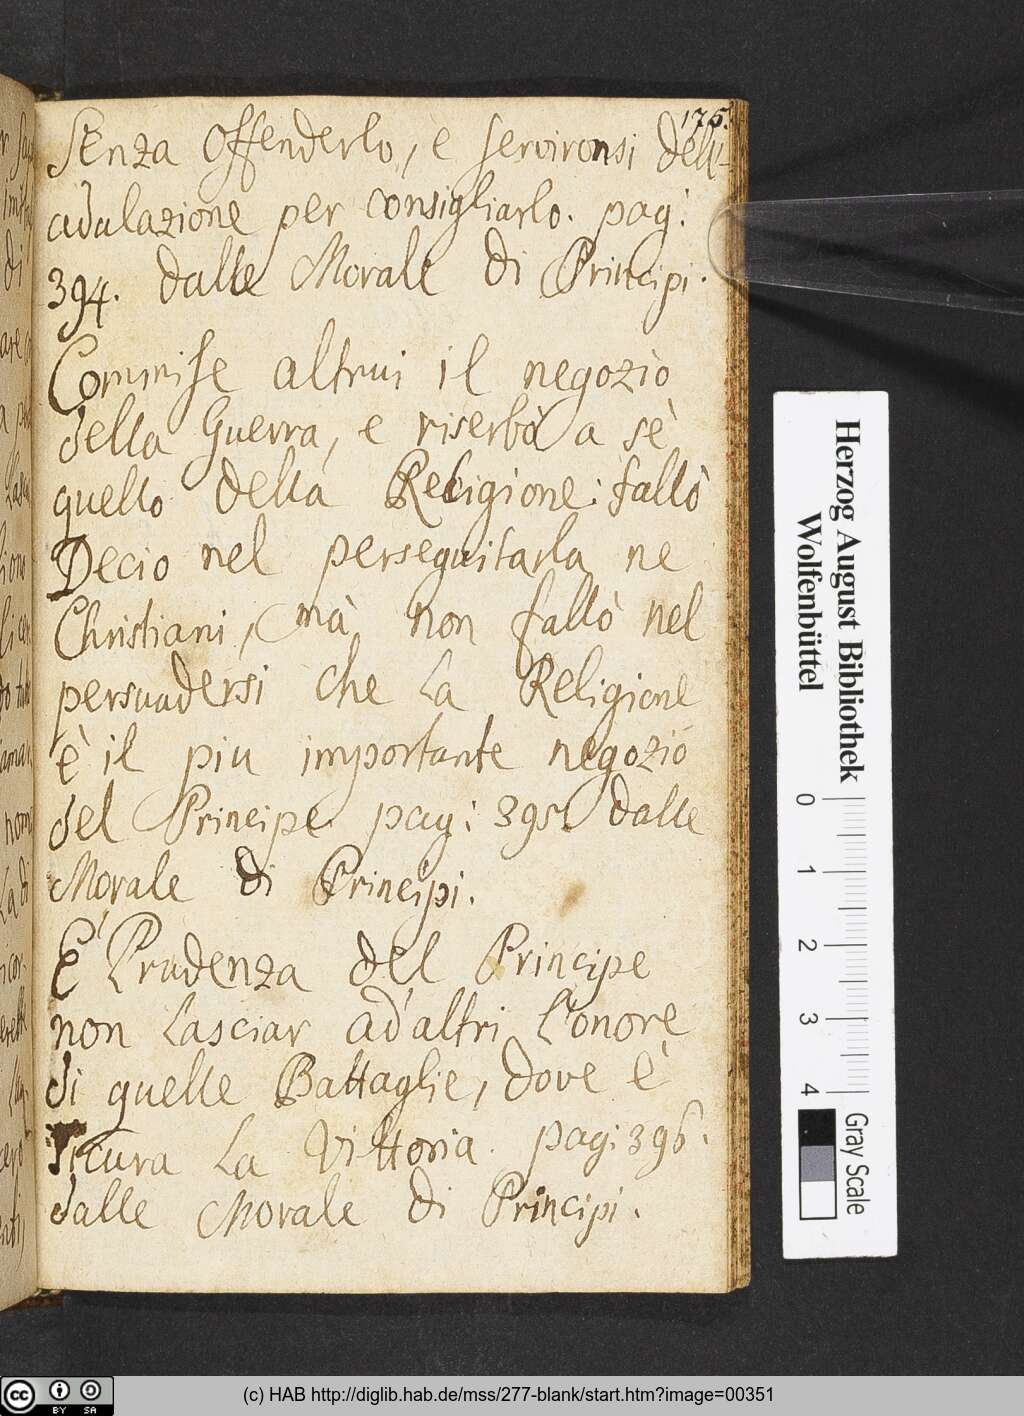 175.
Senza Offenderlo, e servironsi dell'-
adulazione per consigliarlo. pag:
394. dalle Morale di Principi.
Commise altrui il negoziò
della Guerra, e riserbò a sè
quello della Religione: fallò
Decio nel perseguitarla ne
Christiani, mà non fallò nel
persuadersi che la Religione
è il piu importante negozio
del Principe pag: 395. dalle
Morale di Principi.
E' Prudenza del Principe
non lasciar ad'altri l'onore
di quelle Battaglie, dove è
sicura la Vittoria. pag: 396.
dalle Morale di Principi.
Herzog August Bibliothek
Wolfenbüttel
0 1 2 3 4
Gray Scale
cc BY SA
(c) HAB http://diglib.hab.de/mss/277-blank/start.htm?image=00351